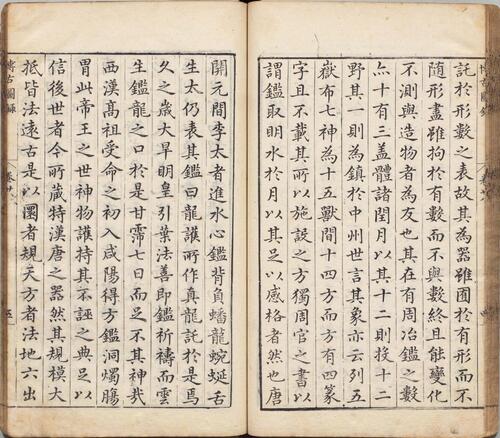 託於形數之表故其為器雖囿於有形而不
隨形盡雖拘於有數而不與數終且能變化
不測與造物者為友也其在有周冶鑑之數
亦十有三盖體諸閏月以其十二則投十二
野其一則為鎮於中州世言其象亦云列五
嶽布七神為十五獸間十四方而方有四篆
字且不載其所以施設之方獨周官之書
謂鑑取明水於月以其足以感格者然也唐
開元間李太者進水心鑑背負蟠龍蜿蜒若
生太仍表其鑑曰龍護所作真龍託於是焉
久之歲大旱明皇引葉法善即鑑祈禱而雲
生鑑龍之口於是甘霈七日而足不其神哉
西漢高祖受命之初入咸陽得方鑑洞燭腸
胃此帝王之世神物護持其不誣之典足以
信後世者今所藏特漢唐之器然其規模大
抵皆法遠古是以圜者規天方者法地六出
博古圖錄
卷廿八
五